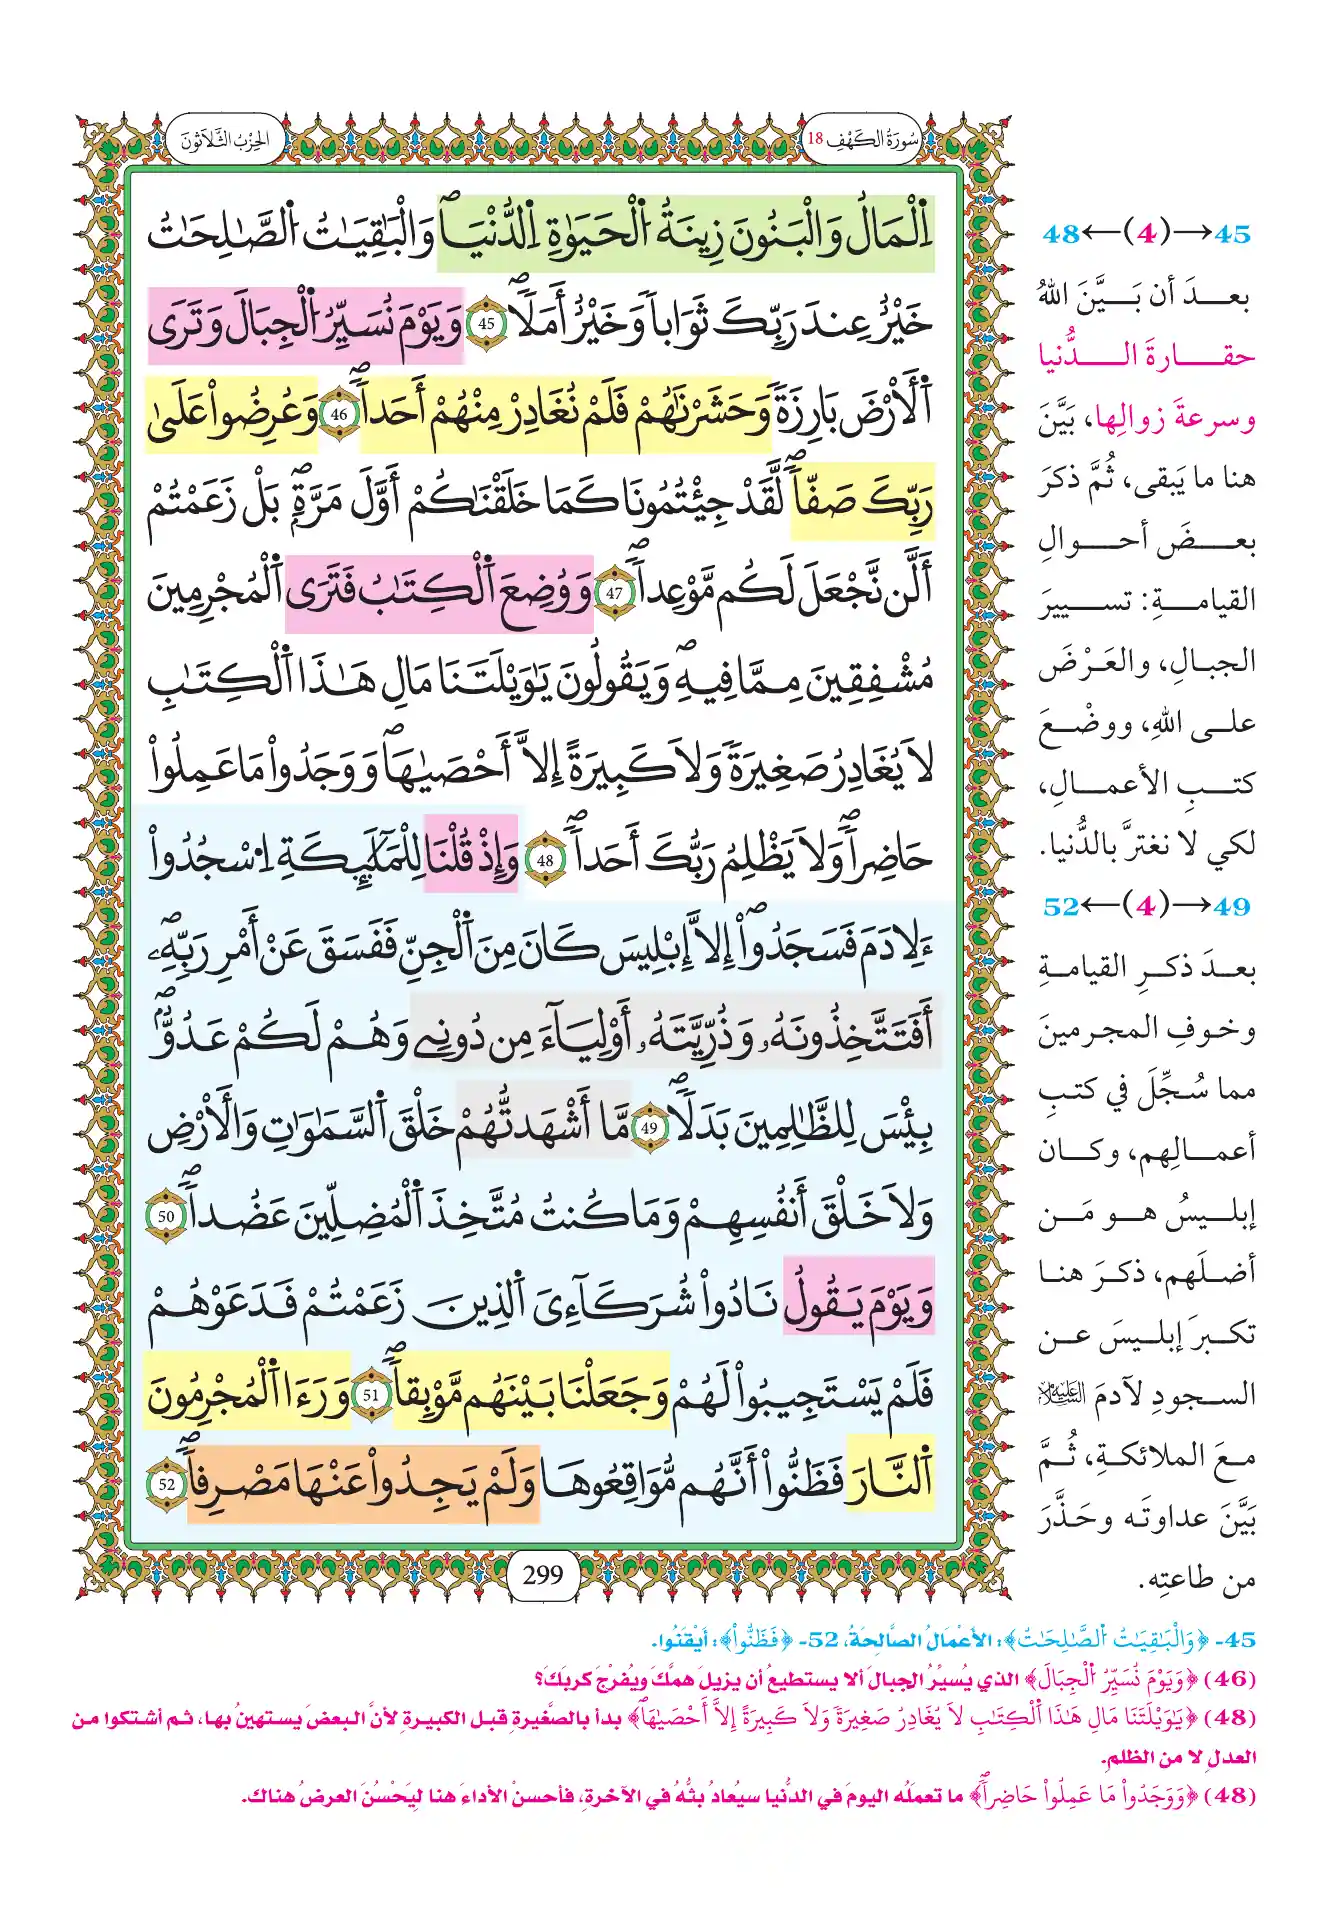 سُورَةُ الكَهْفِ 18
الحِزْبُ الثَّلَاثُونَ
اِ۬لْمَالُ وَالْبَنُونَ زِينَةُ اُ۬لْحَيَوٰةِ اِ۬لدُّنْي۪اۖ وَالْبَٰقِيَٰتُ اُ۬لصَّٰلِحَٰتُ
خَيْرٌ عِندَ رَبِّكَ ثَوَاباٗ وَخَيْرٌ أَمَلاٗۖ 45 وَيَوْمَ نُسَيِّرُ اُ۬لْجِبَالَ وَتَرَى
اَ۬لْأَرْضَ بَارِزَةٗ وَحَشَرْنَٰهُمْ فَلَمْ نُغَادِرْ مِنْهُمْ أَحَداٗۖ 46 وَعُرِضُواْ عَلَىٰ
رَبِّكَ صَفّاٗۖ لَّقَدْ جِيْتُمُونَا كَمَا خَلَقْنَٰكُمْ أَوَّلَ مَرَّةِۢۖ بَلْ زَعَمْتُمْ
أَلَّن نَّجْعَلَ لَكُم مَّوْعِداٗۖ 47 وَوُضِعَ اَ۬لْكِتَٰبُ فَتَرَى اَ۬لْمُجْرِمِينَ
مُشْفِقِينَ مِمَّا فِيهِۖ وَيَقُولُونَ يَٰوَيْلَتَنَا مَالِ هَٰذَا اَ۬لْكِتَٰبِ
لَا يُغَادِرُ صَغِيرَةٗ وَلَا كَبِيرَةً إِلَّا أَحْصَيٰهَاۖ وَوَجَدُواْ مَا عَمِلُواْ
حَاضِراٗۖ وَلَا يَظْلِمُ رَبُّكَ أَحَداٗۖ 48 وَإِذْ قُلْنَا لِلْمَلَٰٓئِكَةِ اِ۟سْجُدُواْ
ءَلِادَمَ فَسَجَدُواْۖ إِلَّا إِبْلِيسَ كَانَ مِنَ اَ۬لْجِنِّ فَفَسَقَ عَنْ أَمْرِ رَبِّهِۦۖ
أَفَتَتَّخِذُونَهُۥ وَذُرِّيَّتَهُۥ أَوْلِيَآءَ مِن دُونِے وَهُمْ لَكُمْ عَدُوُّۢۖ
بِئْسَ لِلظَّٰلِمِينَ بَدَلاٗۖ 49 مَّا أَشْهَدتُّهُمْ خَلْقَ اَ۬لسَّمَٰوَٰتِ وَالْأَرْضِ
وَلَا خَلْقَ أَنفُسِهِمْ وَمَا كُنتُ مُتَّخِذَ اَ۬لْمُضِلِّينَ عَضُداٗۖ 50
وَيَوْمَ يَقُولُ نَادُواْ شُرَكَآءِيَ اَ۬لذِينَ زَعَمْتُمْ فَدَعَوْهُمْ
فَلَمْ يَسْتَجِيبُواْ لَهُمْ وَجَعَلْنَا بَيْنَهُم مَّوْبِقاٗۖ 51 وَرَءَا اَ۬لْمُجْرِمُونَ
اَ۬لنَّارَ فَظَنُّواْ أَنَّهُم مُّوَاقِعُوهَا وَلَمْ يَجِدُواْ عَنْهَا مَصْرِفاٗۖ 52
299
45→(4)←48
بعدَ أن بَيَّنَ اللهُ
حقارةَ الدُّنيا
وسرعةَ زوالِها، بَيَّنَ
هنا ما يَبقى، ثُمَّ ذكرَ
بعضَ أحوالِ
القيامةِ: تسييرَ
الجبالِ، والعَرْضَ
على اللهِ، ووضْعَ
كتبِ الأعمالِ،
لكي لا نغترَّ بالدُّنيا.
49→(4)←52
بعدَ ذكرِ القيامةِ
وخوفِ المجرمينَ
مما سُجِّلَ في كتبِ
أعمالِهم، وكان
إبليسُ هو مَن
أضلَهم، ذكرَ هنا
تكبرَ إبليسَ عن
السجودِ لآدمَ عليه السلام
معَ الملائكةِ، ثُمَّ
بَيَّنَ عداوتَه وحَذَّرَ
من طاعتِه.
45- ﴿وَالْبَٰقِيَٰتُ اُ۬لصَّٰلِحَٰتُ﴾: الأعْمَالُ الصَّالِحَةُ، 52- ﴿فَظَنُّواْ﴾: أيْقَنُوا.
(46) ﴿وَيَوْمَ نُسَيِّرُ اُ۬لْجِبَالَ﴾ الذي يُسيِّرُ الجبالَ ألا يستطيعُ أن يزيلَ همَّكَ ويُفرْجَ كربَكَ؟
(48) ﴿يَٰوَيْلَتَنَا مَالِ هَٰذَا اَ۬لْكِتَٰبِ لَا يُغَادِرُ صَغِيرَةٗ وَلَا كَبِيرَةً إِلَّا أَحْصَيٰهَاۖ﴾ بدأ بالصَّغيرةِ قبل الكبيرةِ لأنَّ البعضَ يستهينُ بها، ثم أشتكوا من
العدلِ لا من الظلمِ.
(48) ﴿وَوَجَدُواْ مَا عَمِلُواْ حَاضِراٗۖ﴾ ما تعملُه اليومَ في الدُّنيا سيُعادُ بثُّهُ في الآخرةِ، فأحسنْ الأداءَ هنا ليَحْسُنَ العرضُ هناك.